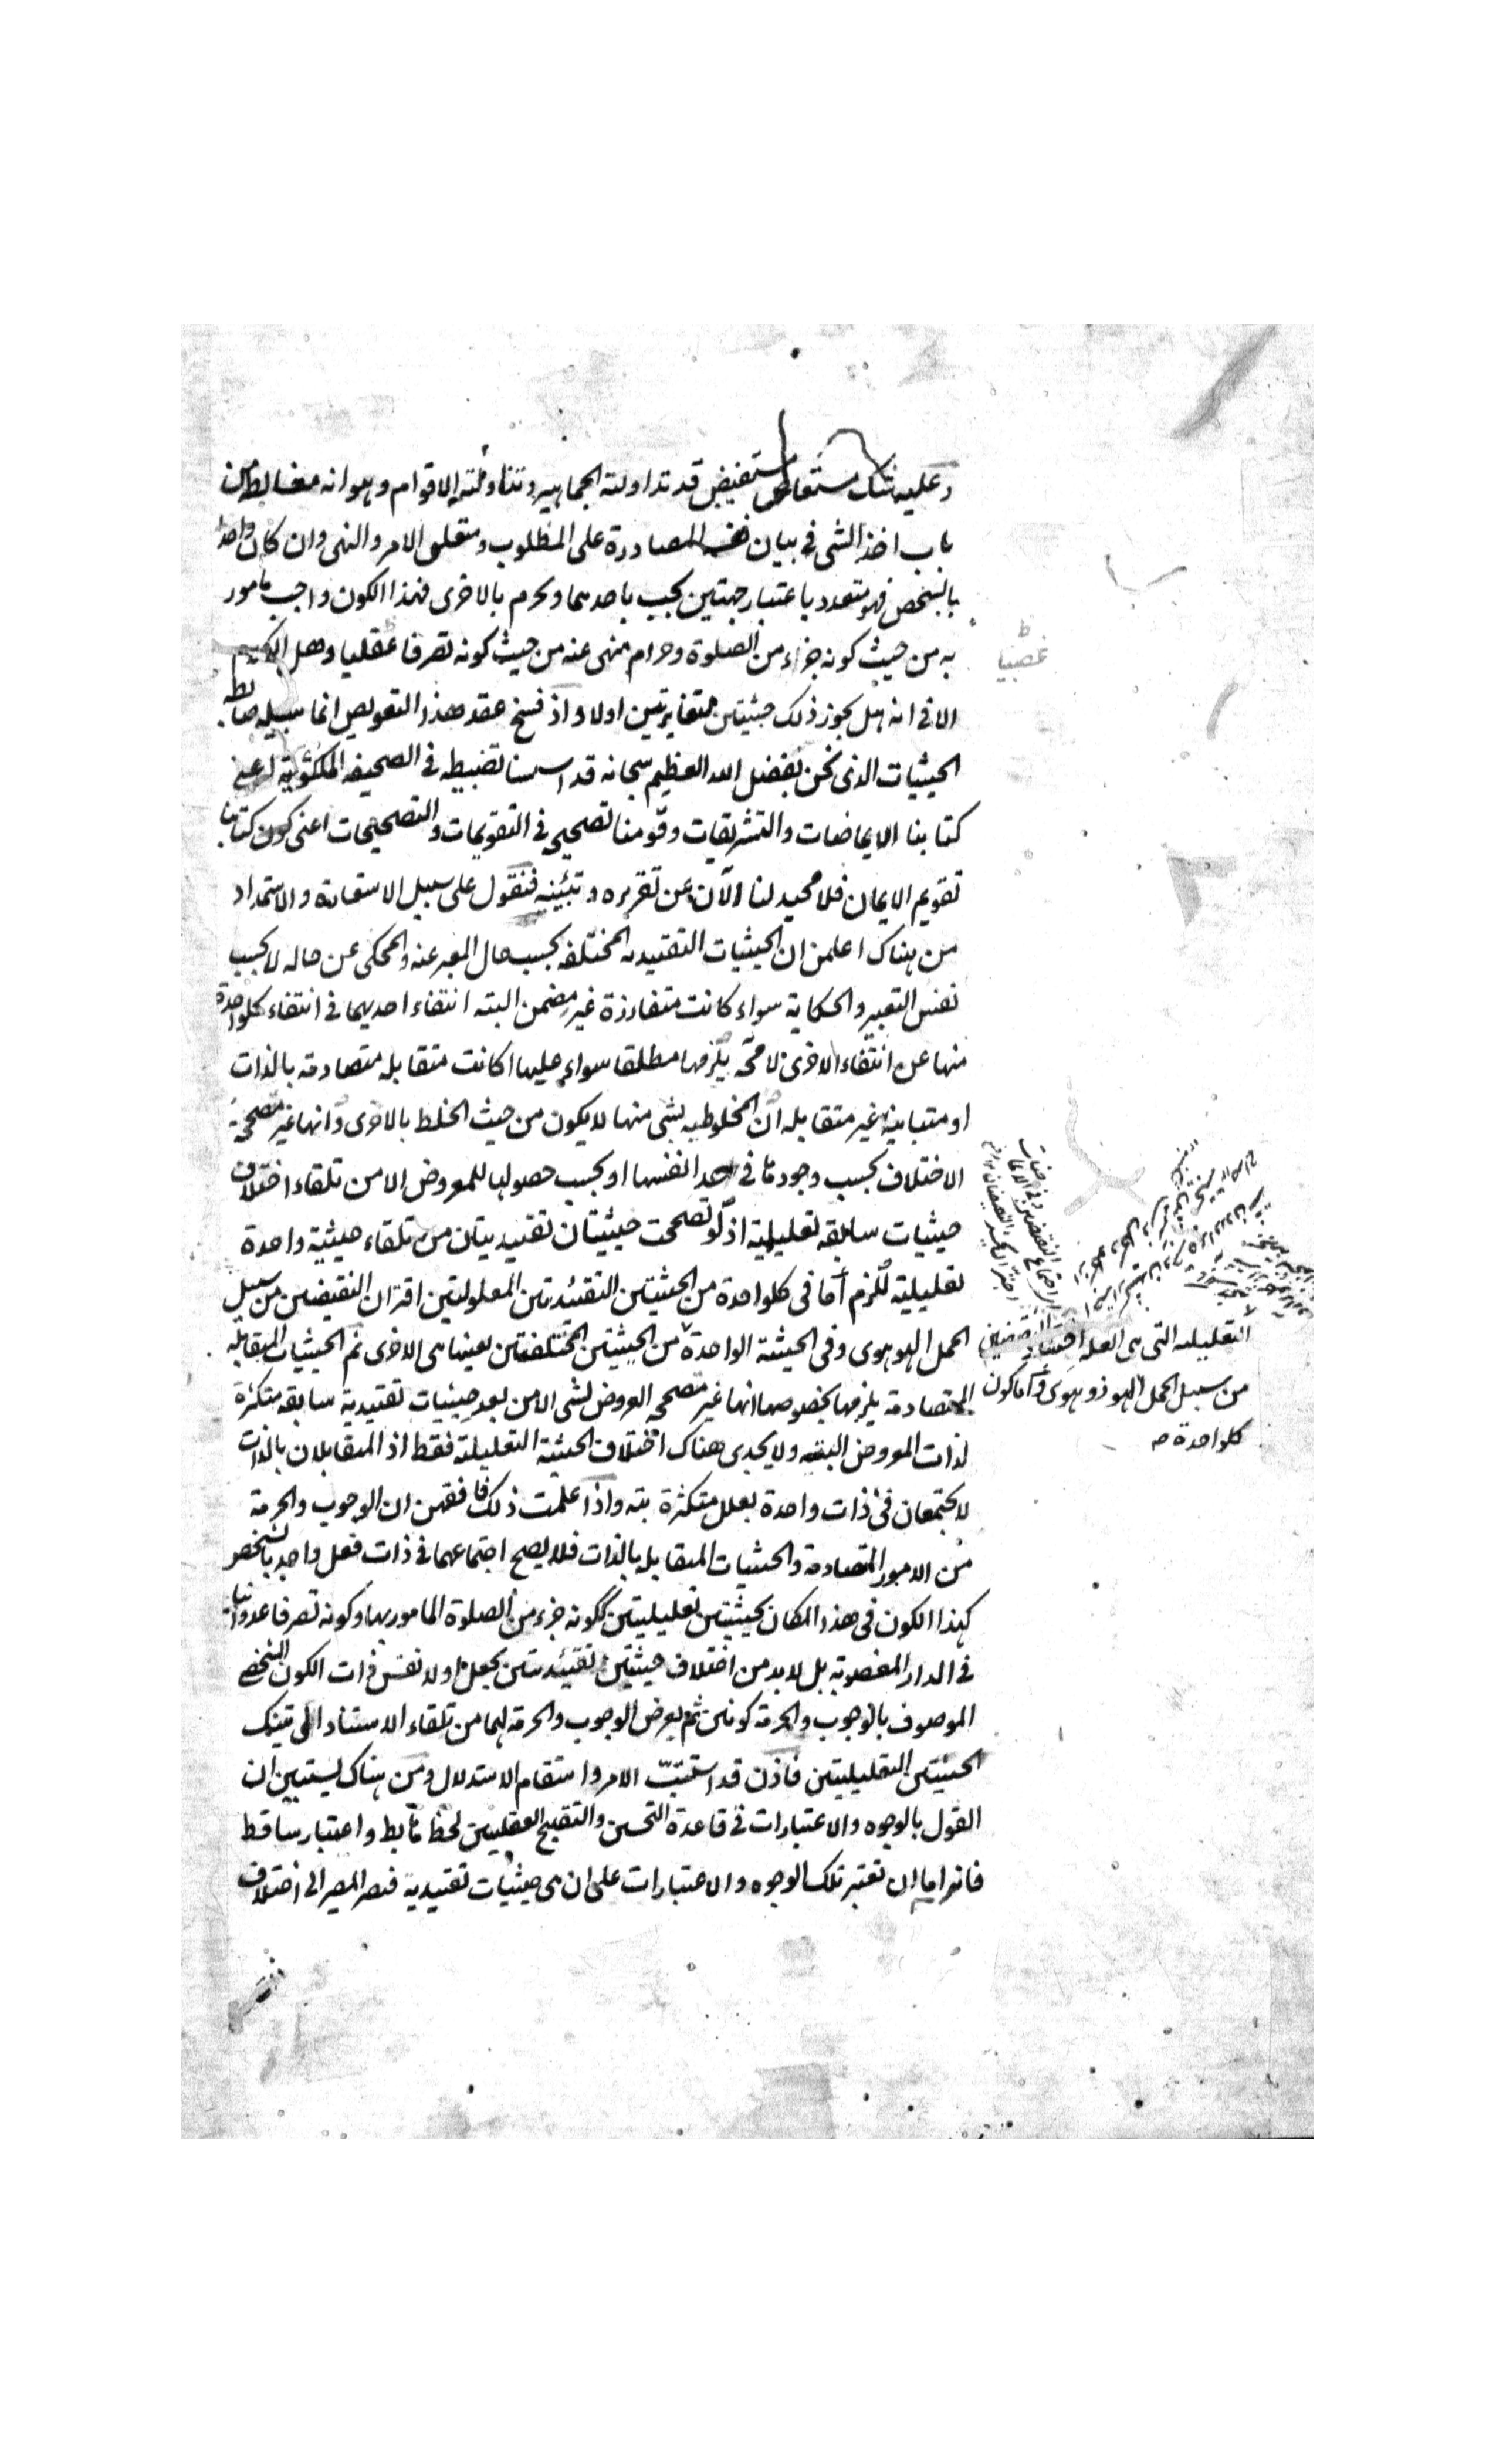 وعليه شك مستعاص مستفيض قد تداولته الجماهير وتناولته الاقوام وهو انه مغالطة من
باب اخذ الشى فى بيان نفسه المصادرة على المطلوب ومتعلق الامر والنهى وان كان واحدا
بالشخص فهو متعدد باعتبار جهتين يجب باحدهما ويحرم بالاخرى فهذا الكون واجب مامور
به من حيث كونه جزء من الصلوة وحرام منهى عنه من حيث كونه تصرفا عقليا وهل الكلام
الا فى انه هل يجوز ذلك بحيثيتين متغايرتين اولا واذ فسخ عقد هذا التعويص انما سبيله ضابط
الحيثيات الذى نحن بفضل الله العظيم سبحانه قد اسسنا تضبيطه فى الصحيفة الملكوتية اعنى
كتابنا الايماضات والتشريقات وقومنا تصحيحه فى التقويمات والتصحيحات اعنى كون كتابنا
تقويم الايمان فلا محيد لنا الآن عن تقريره وتبيينه فنقول على سبيل الاستعادة والاستمداد
من هناك اعلمن ان الحيثيات التقييدية المختلفة بحسب حال المعبر عنه والمحكى عن حاله لا بحسب
نفس التعبير والحكاية سواء كانت متفارزة غير مضمن البتة انتفاء احديهما فى انتفاء كلواحدة
منها عن انتفاء الاخرى لا محة يلزمها مطلقا سواء عليها اكانت متقابلة متصادمة بالذات
او متباينة غير متقابلة ان المخلوط به بشى منها لا يكون من حيث الخلط بالاخرى وانها غير متصححة
الاختلاف بحسب وجودها فى حد انفسها او بحسب حصولها للمعروض الا من تلقاء اختلاف
حيثيات سابقة تعليلية اذ لو تصححت حيثيتان تقييديتان من تلقاء حيثية واحدة
تعليلية للزم اما فى كلواحدة من الحيثيتين التقييديتين المعلولتين اقتران النقيضين من سبيل
الحمل الهوهوى وفى الحيثية الواحدة من الحيثيتين المختلفتين بعينها هى الاخرى ثم الحيثيات المتقابلة
المتصادمة يلزمها بخصوصها انها غير متصححى العروض لشى الا من بعد حيثيات تقييدية سابقة متكثرة
لذات المعروض البتة ولا يجدى هناك اختلاف الحيثية التعليلية فقط اذ المتقابلان بالذات
لا يجتمعان فى ذات واحدة بعلل متكثرة بتة واذا علمت ذلك فافقهن ان الوجوب والحرمة
من الامور المتصادمة والحيثيات المتقابلة بالذات فلا يصح اجتماعهما فى ذات فعل واحد بالشخص
كهذا الكون فى هذا المكان بحيثيتين تعليليتين ككونه جزء من الصلوة المامور بها وكونه تصرفا عدوانيا
فى الدار المغصوبة بل لا بد من اختلاف حيثيتين تقييديتين يجعل اولا نفس ذات الكون الشخصى
الموصوف بالوجوب والحرمة كونين ثم يعرض الوجوب والحرمة لهما من تلقاء الاستناد الى تينك
الحيثيتين التعليليتين فاذن قد استتب الامر واستقام الاستدلال ومن هناك يستبين ان
القول بالوجوه والاعتبارات فى قاعدة التحسين والتقبيح العقليين لحظ هابط واعتبار ساقط
فانه اما ان تعتبر تلك الوجوه والاعتبارات على ان هى حيثيات تقييدية فنصر المصير الى اختلاف
ظ
غصبيا
التعليلية التى هى العلة
من سبيل الحمل الهو ذو هوى واما كون
كلواحدة صح